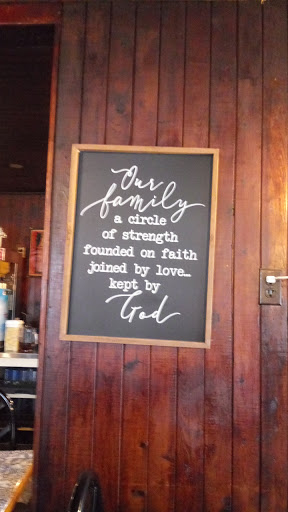 Our
family
a circle
of strength
founded on faith
joined by love...
kept by
God